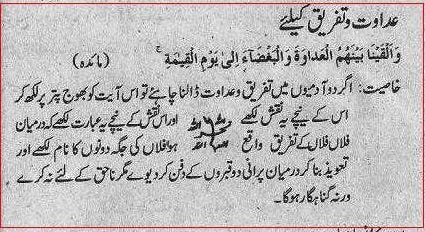 عداوت وتفریق کیلئے
وَاَلْقَیْنَا بَیْنَهُمُ الْعَدَاوَةَ وَالْبَغْضَآءَ اِلٰی یَوْمِ الْقِیٰمَةِ (مائدہ)
خاصیت: اگر دو آدمیوں میں تفریق وعداوت ڈالنا چاہے تو اس آیت کو بھوج پتر پر لکھ کر
اس کے نیچے یہ نقش لکھے اور اس نقش کے نیچے یہ عبارت لکھے کہ درمیان
فلاں فلاں کے تفریق واقع ہو فلاں کی جگہ دونوں کا نام لکھے اور
تعویذ بنا کر درمیان پرانی دو قبروں کے دفن کر دیوے مگر ناحق کے لئے نہ کرے
ورنہ گناہگار ہوگا۔